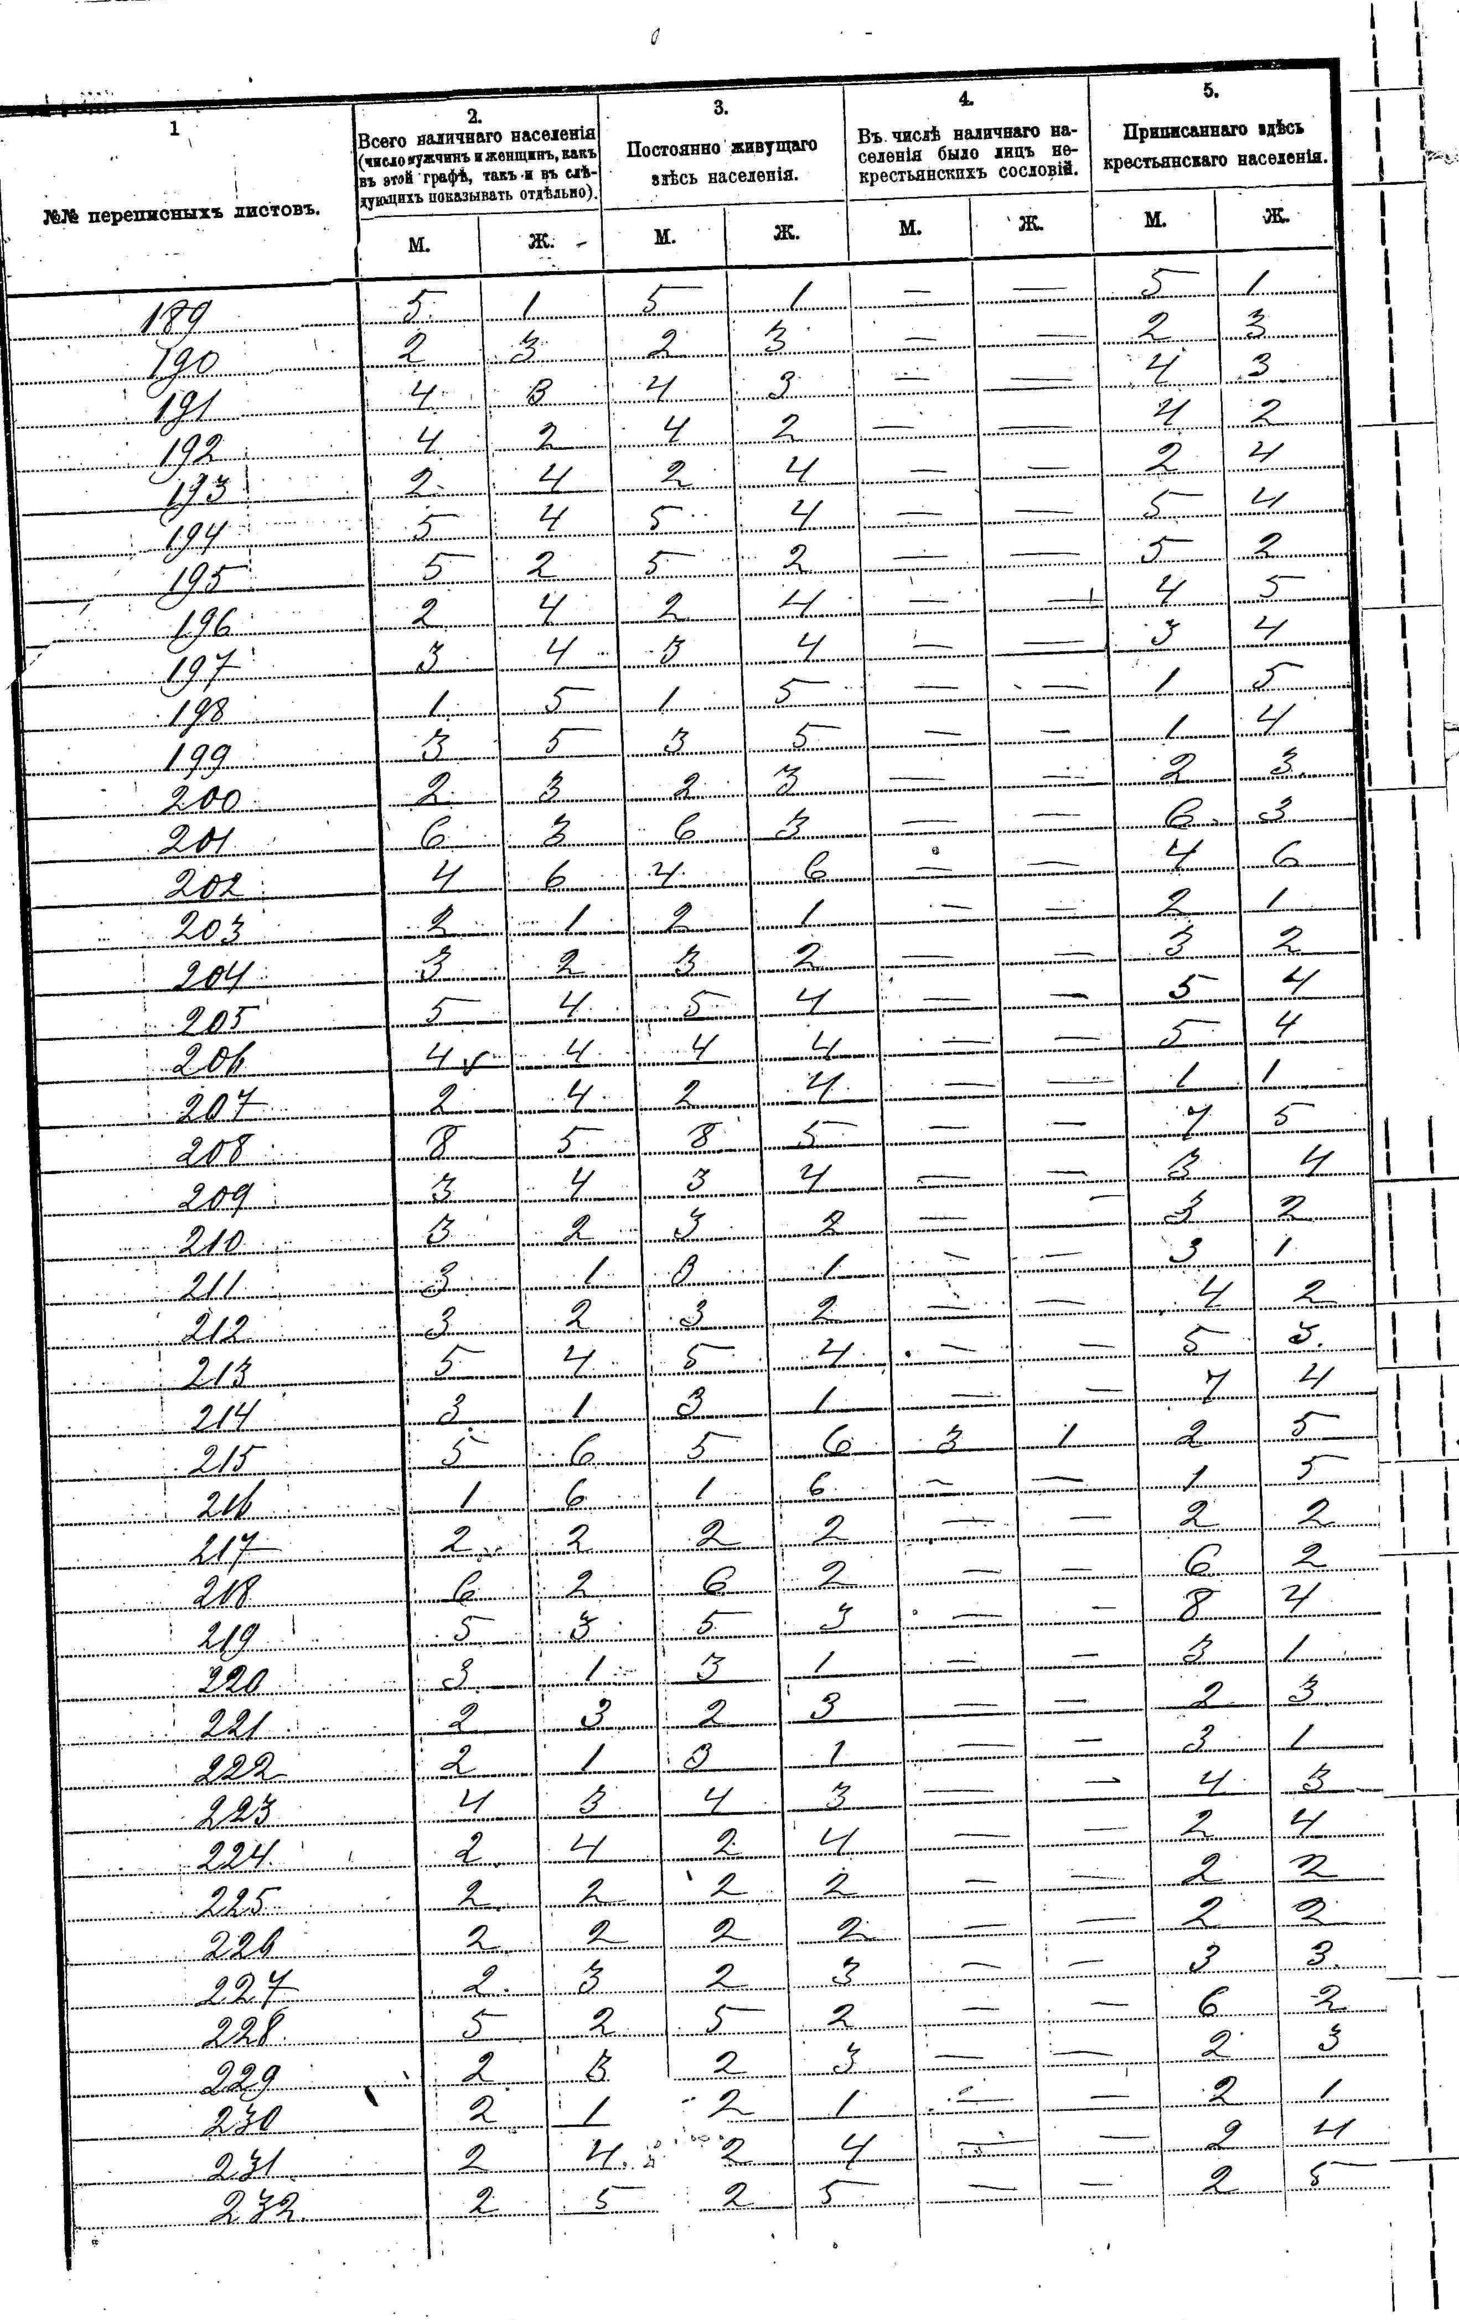 1
2.
3.
4.
5.
№№ переписныхъ листовъ.
Всего наличнаго населенія
(число мужчинъ и женщинъ, какъ
въ этой графѣ, такъ и въ слѣ-
дующихъ показывать отдѣльно).
Постоянно живущаго
здѣсь населенія.
Въ числѣ наличнаго на-
селенія было лицъ не-
крестьянскихъ сословій.
Приписаннаго здѣсь
крестьянскаго населенія.
М. Ж. М. Ж. М. Ж. М. Ж.
189 5 1 5 1 — — 5 1
190 2 3 2 3 — — 2 3
191 4 3 4 3 — — 4 3
192 4 2 4 2 — — 4 2
193 2 4 2 4 — — 2 4
194 5 4 5 4 — — 5 4
195 5 2 5 2 — — 5 2
196 2 4 2 4 — — 4 5
197 3 4 3 4 — — 3 4
198 1 5 1 5 — — 1 5
199 3 5 3 5 — — 1 4
200 2 3 2 3 — — 2 3
201 6 3 6 3 — — 6 3
202 4 6 4 6 — — 4 6
203 2 1 2 1 — — 2 1
204 3 2 3 2 — — 3 2
205 5 4 5 4 — — 5 4
206 4 4 4 4 — — 5 4
207 2 4 2 4 — — 1 1
208 8 5 8 5 — — 7 5
209 3 4 3 4 — — 3 4
210 3 2 3 2 — — 3 2
211 3 1 3 1 — — 3 1
212 3 2 3 2 — — 4 2
213 5 4 5 4 — — 5 3
214 3 1 3 1 — — 7 4
215 5 6 5 6 3 1 2 5
216 1 6 1 6 — — 1 5
217 2 2 2 2 — — 2 2
218 6 2 6 2 — — 6 2
219 5 3 5 3 — — 8 4
220 3 1 3 1 — — 3 1
221 2 3 2 3 — — 2 3
222 2 1 3 1 — — 3 1
223 4 3 4 3 — — 4 3
224 2 4 2 4 — — 2 4
225 2 2 2 2 — — 2 2
226 2 2 2 2 — — 2 2
227 2 3 2 3 — — 3 3
228 5 2 5 2 — — 6 2
229 2 3 2 3 — — 2 3
230 2 1 2 1 — — 2 1
231 2 4 2 4 — — 2 4
232 2 5 2 5 — — 2 5